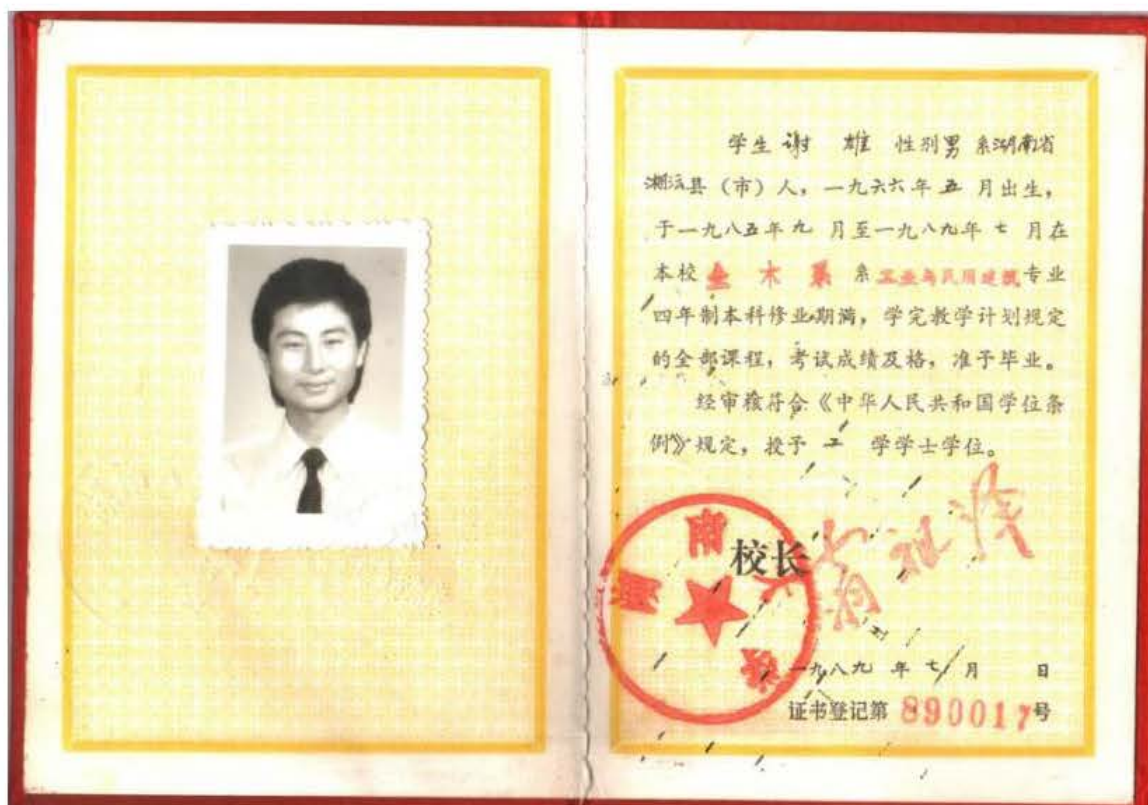 学生 谢 雄 性别 男 系湖南省
湘沅县（市）人，一九六六年 五 月出生，
于一九八五年 九 月至一九八九年 七 月在
本校 土 木 系 系 工业与民用建筑 专业
四年制本科修业期满，学完教学计划规定
的全部课程，考试成绩及格，准予毕业。
经审核符合《中华人民共和国学位条
例》规定，授予 工 学学士学位。
湖南大学
校长
一九八九 年 七 月 日
证书登记第 890017 号